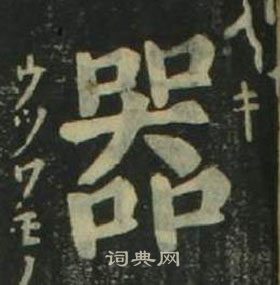 キ
器
ウツワモノ
词典网